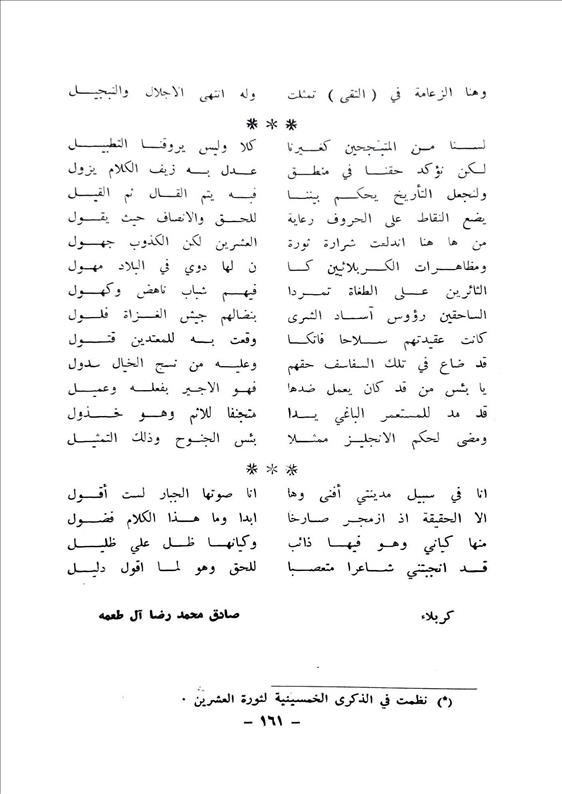 وهنا الزعامة في ( التقى ) تمثلت وله انتهى الاجلال والتبجيل
* * *
لسنا من المتبجحين كغيرنا كلا وليس يروقنا التطبيل
لكن نؤكد حقنا في منطق عدل به زيف الكلام يزول
ولنجعل التأريخ يحكم بيننا فبه يتم القال ثم القيل
يضع النقاط على الحروف رعاية للحق والانصاف حيث يقول
من ها هنا اندلعت شرارة ثورة العشرين لكن الكذوب جهول
ومظاهرات الكربلائيين كا ن لها دوي في البلاد مهول
الثائرين على الطغاة تمردا فيهم شباب ناهض وكهول
الساحقين رؤوس آساد الشرى بنضالهم جيش الغزاة فلول
كانت عقيدتهم سلاحا فاتكا وقعت به للمعتدين قتول
قد ضاع في تلك السفاسف حقهم وعليه من نسج الخيال سدول
يا بئس من قد كان يعمل ضدها فهو الاجير بفعله وعميل
قد مد للمستعمر الباغي يدا متجنفا للاثم وهو خذول
ومضى لحكم الانجليز ممثلا بئس الجنوح وذلك التمثيل
* * *
انا في سبيل مدينتي أفنى وها انا صوتها الجبار لست أقول
الا الحقيقة اذ ازمجر صارخا ابدا وما هذا الكلام فضول
منها كياني وهو فيها ذائب وكيانها ظل علي ظليل
قد انجبتني شاعرا متعصبا للحق وهو لما اقول دليل
كربلاء صادق محمد رضا آل طعمه
(*) نظمت في الذكرى الخمسينية لثورة العشرين .
- ١٦١ -